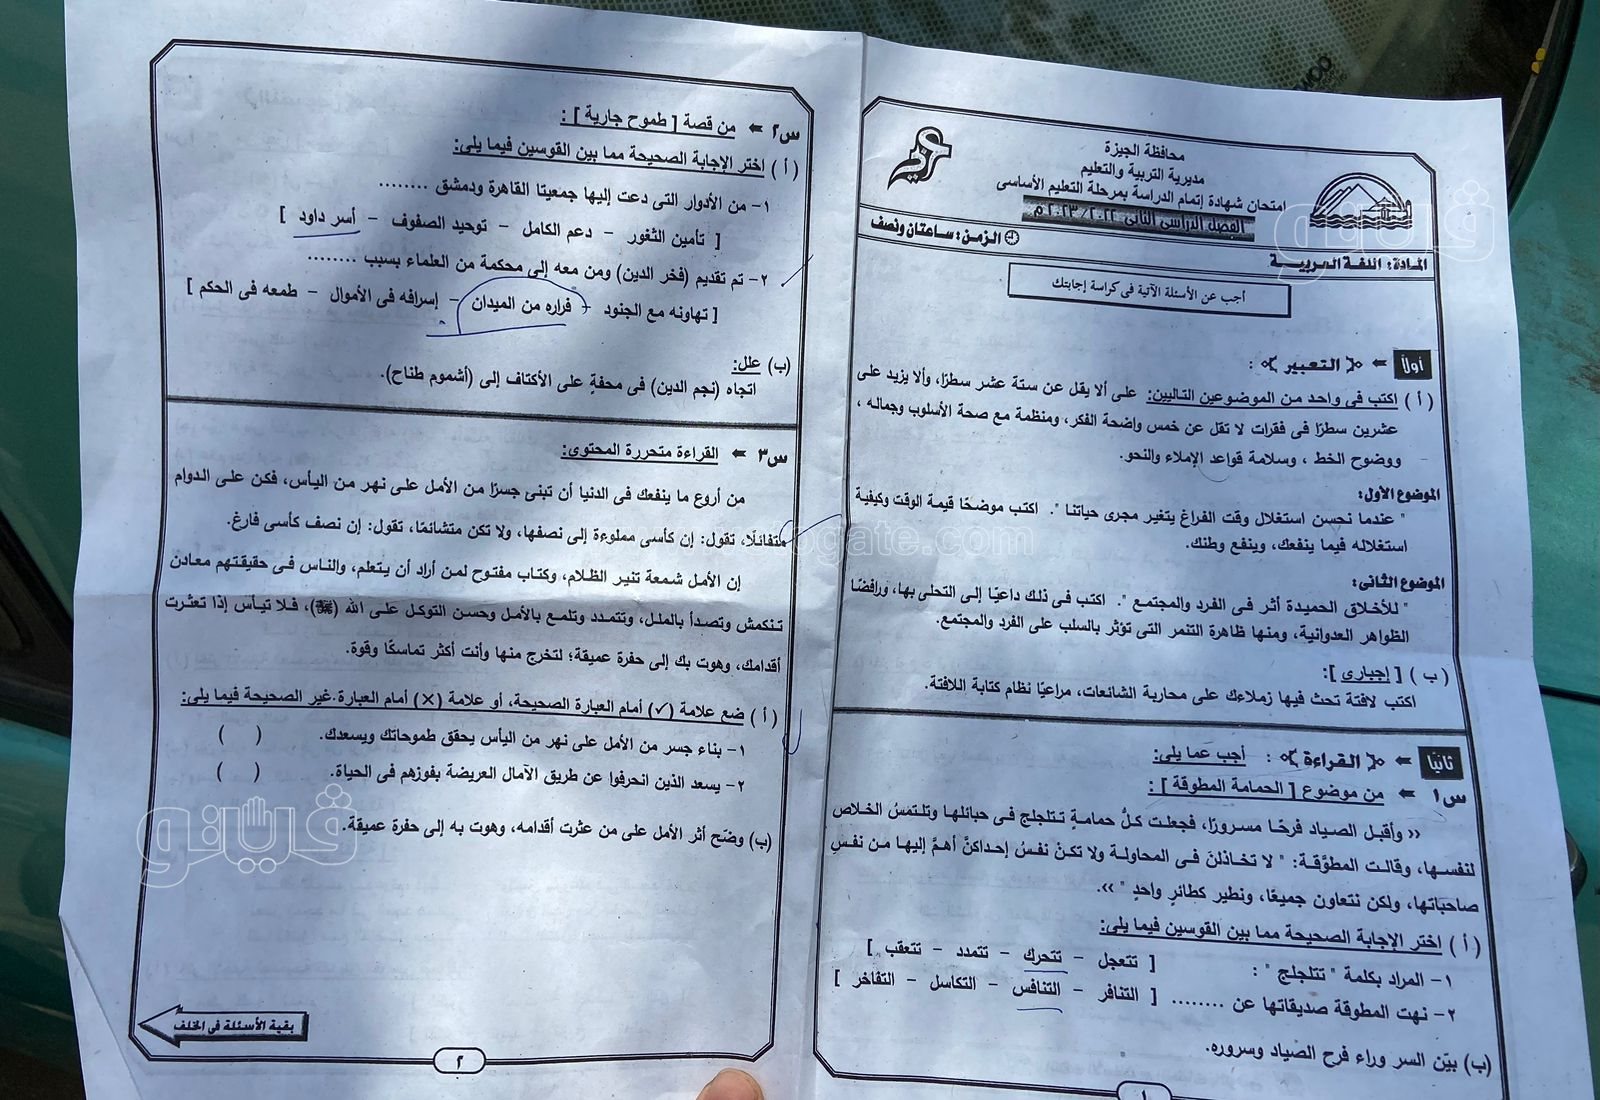 محافظة الجيزة
مديرية التربية والتعليم
امتحان شهادة إتمام الدراسة بمرحلة التعليم الأساسى
الفصل الدراسى الثانى ٢٠٢٢/ ٢٠٢٣ م
المادة: اللغة العربية
الزمن: ساعتان ونصف
أجب عن الأسئلة الآتية فى كراسة إجابتك
أولاً التعبير :
( أ ) اكتب فى واحد من الموضوعين التاليين: على ألا يقل عن ستة عشر سطرًا، وألا يزيد على
عشرين سطرًا فى فقرات لا تقل عن خمس واضحة الفكر، ومنظمة مع صحة الأسلوب وجماله ،
ووضوح الخط ، وسلامة قواعد الإملاء والنحو.
الموضوع الأول:
" عندما نحسن استغلال وقت الفراغ يتغير مجرى حياتنا ". اكتب موضحًا قيمة الوقت وكيفية
استغلاله فيما ينفعك، وينفع وطنك.
الموضوع الثانى:
" للأخلاق الحميدة أثر فى الفرد والمجتمع ". اكتب فى ذلك داعيًا إلى التحلى بها، ورافضًا
الظواهر العدوانية، ومنها ظاهرة التنمر التى تؤثر بالسلب على الفرد والمجتمع.
( ب ) [ إجبارى ]:
اكتب لافتة تحث فيها زملاءك على محاربة الشائعات، مراعيًا نظام كتابة اللافتة.
ثانيًا القراءة : أجب عما يلى:
س١ من موضوع [ الحمامة المطوقة ] :
‹‹ وأقبل الصياد فرحًا مسرورًا، فجعلت كلُّ حمامةٍ تتلجلج فى حبائلها وتلتمسُ الخلاص
لنفسها، وقالت المطوَّقة: " لا تخاذلنَ فى المحاولة ولا تكنْ نفسُ إحداكنَّ أهمَّ إليها من نفسِ
صاحباتها، ولكن نتعاون جميعًا، ونطير كطائرٍ واحدٍ " ››.
( أ ) اختر الإجابة الصحيحة مما بين القوسين فيما يلى:
١- المراد بكلمة " تتلجلج " : [ تتعجل - تتحرك - تتمدد - تتعقب ]
٢- نهت المطوقة صديقاتها عن ........ [ التنافر - التنافس - التكاسل - التفاخر ]
(ب) بيّن السر وراء فرح الصياد وسروره.
١
س٢ من قصة [ طموح جارية ] :
( أ ) اختر الإجابة الصحيحة مما بين القوسين فيما يلى:
١- من الأدوار التى دعت إليها جمعيتا القاهرة ودمشق ........
[ تأمين الثغور - دعم الكامل - توحيد الصفوف - أسر داود ]
٢- تم تقديم (فخر الدين) ومن معه إلى محكمة من العلماء بسبب ........
[ تهاونه مع الجنود - فراره من الميدان - إسرافه فى الأموال - طمعه فى الحكم ]
(ب) علل:
اتجاه (نجم الدين) فى محفةٍ على الأكتاف إلى (أشموم طناح).
س٣ القراءة متحررة المحتوى:
من أروع ما ينفعك فى الدنيا أن تبنى جسرًا من الأمل على نهر من اليأس، فكن على الدوام
متفائلًا، تقول: إن كأسى مملوءة إلى نصفها، ولا تكن متشائمًا، تقول: إن نصف كأسى فارغ.
إن الأمل شمعة تنير الظلام، وكتاب مفتوح لمن أراد أن يتعلم، والناس فى حقيقتهم معادن
تنكمش وتصدأ بالملل، وتتمدد وتلمع بالأمل وحسن التوكل على الله، فلا تيأس إذا تعثرت
أقدامك، وهوت بك إلى حفرة عميقة؛ لتخرج منها وأنت أكثر تماسكًا وقوة.
( أ ) ضع علامة (✓) أمام العبارة الصحيحة، أو علامة (×) أمام العبارة غير الصحيحة فيما يلى:
١- بناء جسر من الأمل على نهر من اليأس يحقق طموحاتك ويسعدك. ( )
٢- يسعد الذين انحرفوا عن طريق الآمال العريضة بفوزهم فى الحياة. ( )
(ب) وضّح أثر الأمل على من عثرت أقدامه، وهوت به إلى حفرة عميقة.
بقية الأسئلة فى الخلف
٢
فايتو
فايتو